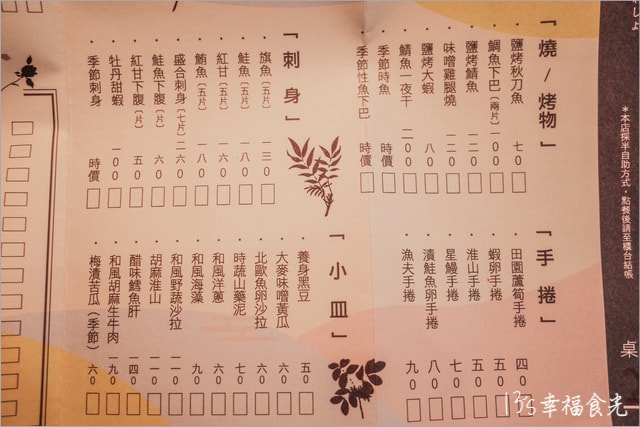 しょ
*本店採半自助方式，點餐後請至櫃台結帳
桌
「燒/烤物」
・鹽烤秋刀魚 七0
・鯛魚下巴(兩片) 一00
・鹽烤鯖魚 一二0
・味噌雞腿燒 一二0
・鹽烤大蝦 八0
・鯖魚一夜干 二00
・季節時魚 時價
・季節性魚下巴 時價
「手捲」
・田園蘆筍手捲 四0
・蝦卵手捲 五0
・淮山手捲 五0
・星鰻手捲 七0
・漬鮭魚卵手捲 八0
・漁夫手捲 九0
「刺身」
・旗魚(五片) 一三0
・鮭魚(五片) 一八0
・紅甘(五片) 一八0
・鮪魚(五片) 一八0
・盛合刺身(七片) 二六0
・鮭魚下腹(片) 六0
・紅甘下腹(片) 五0
・牡丹甜蝦 一00
・季節刺身 時價
「小皿」
・養身黑豆 五0
・大麥味噌黃瓜 六0
・北歐魚卵沙拉 六0
・時蔬山藥泥 七0
・和風洋蔥 六0
・和風海藻 九0
・和風野蔬沙拉 一一0
・胡麻淮山 一一0
・醋味鱈魚肝 一四0
・和風胡麻生牛肉 一九0
・梅漬苦瓜(季節) 六0
幸福食光